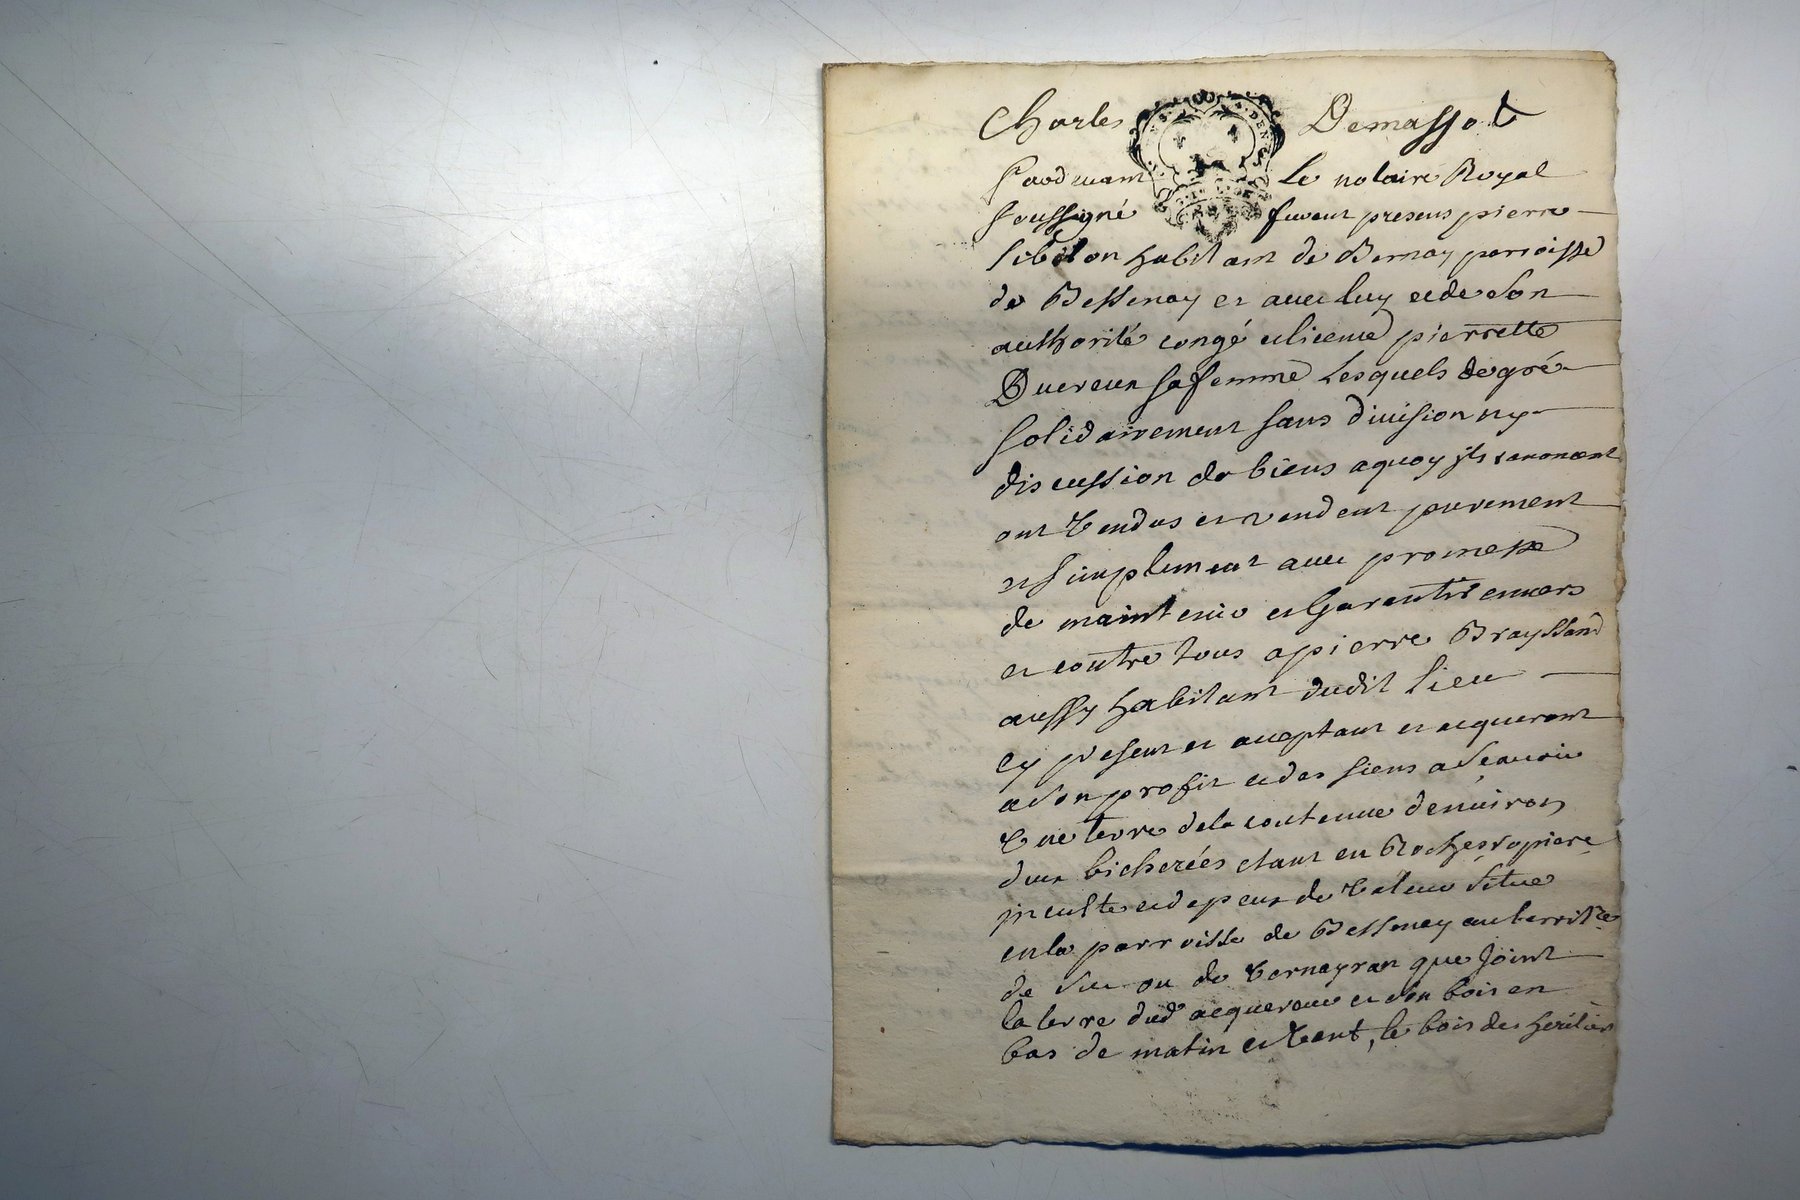 Charles Demassot
Pardevant Le notaire Royal
soussigné furent presens pierre
habitant de Bernay parroisse
de Bessenay et avec luy et de son
authorité congé et licence pierrette
sa femme Lesquels de gré
solidairement sans division ny
discussion de biens a quoy jls renoncent
ont Vendus et vendent purement
et simplement avec promesse
de maintenir et Garentir envers
et contre tous a pierre Brayssand
aussy habitant dudit lieu
cy present et aceptant et acquerant
a son profit et des siens a Scavoir
Vne terre de la contenue denviron
deux bicherées etant en Roches
jnculte et de peu de Valeur Situe
en la parroisse de Bessenay au territre
de ou de que Joint
la terre dud acquereur et son bois en
bas de matin et Vent, le bois des heritiers